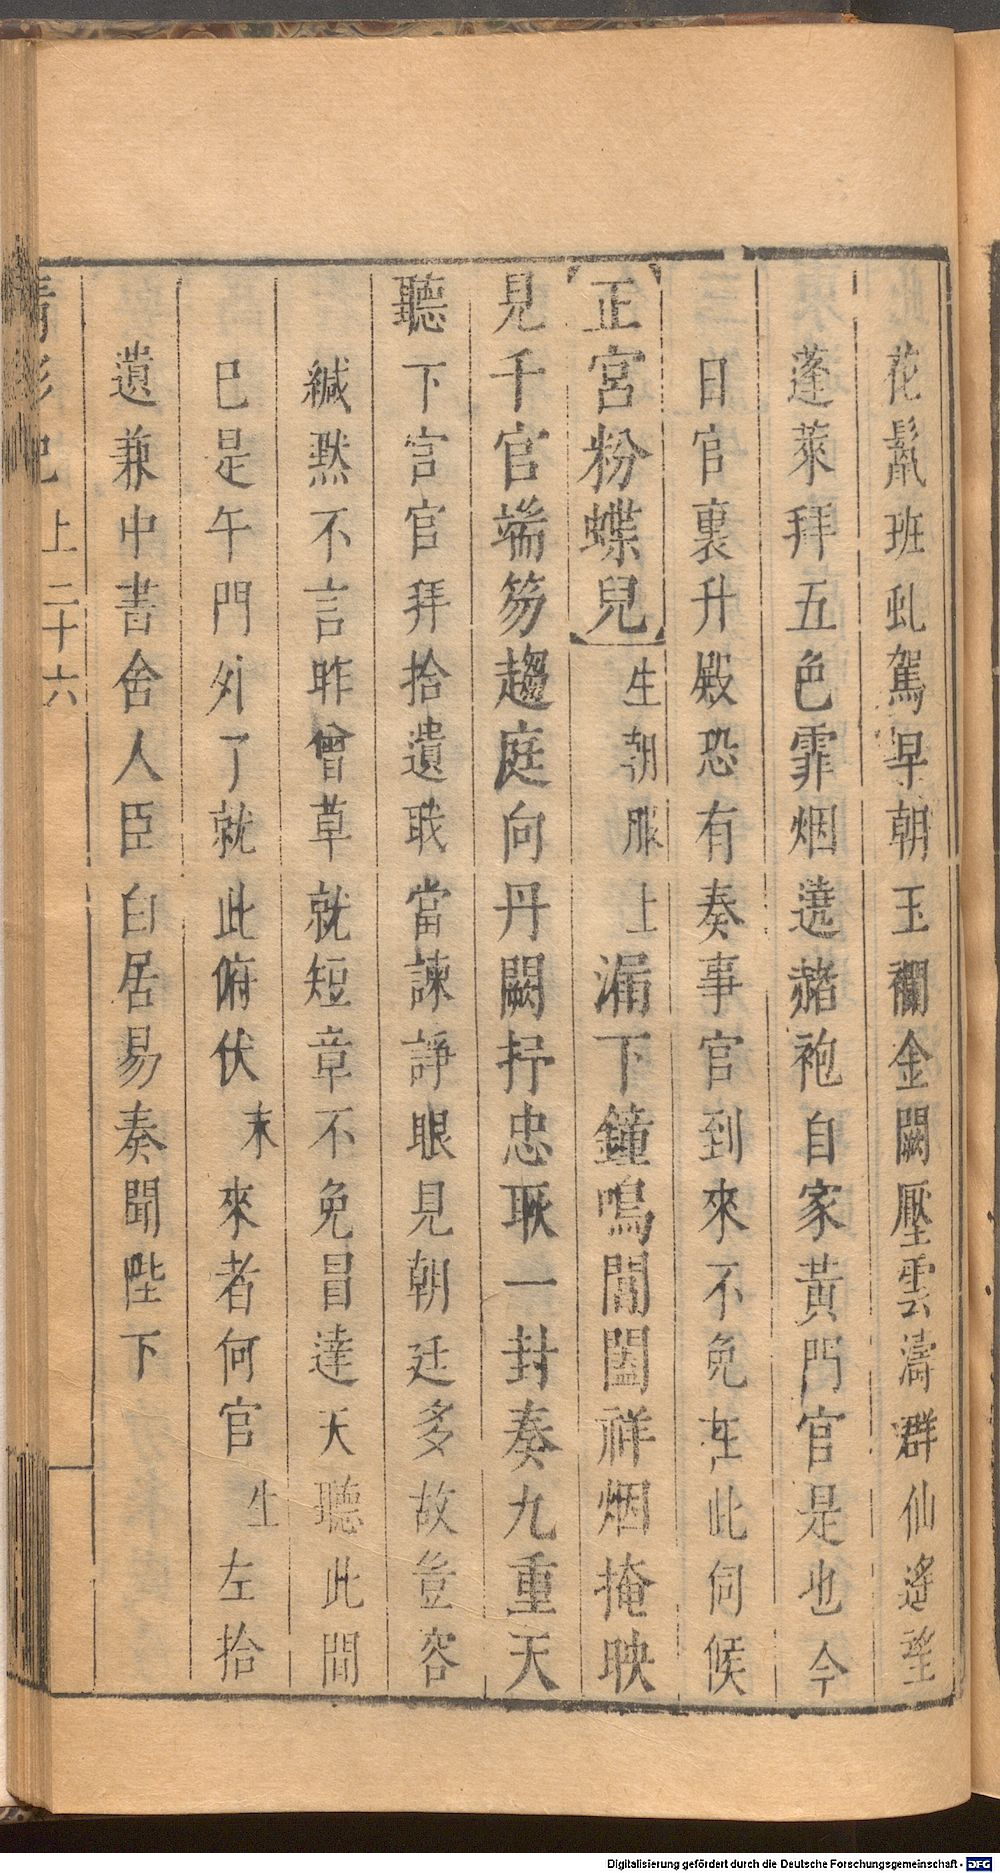 花鬣班虬駕早朝玉襴金闕壓雲濤群仙遙望
蓬萊拜五色霏烟遶赭袍自家黃門官是也今
日官裏升殿恐有奏事官到來不免在此伺候
【正宮粉蝶兒】生朝服上漏下鐘鳴閶闔祥烟掩映
見千官端笏趨庭向丹闕抒忠耿一封奏九重天
聽下官官拜拾遺職當諫諍眼見朝廷多故豈容
緘黙不言昨曾草就短章不免冒達天聽此間
已是午門外了就此俯伏末來者何官生左拾
遺兼中書舍人臣白居易奏聞陛下
青衫記 上 二十六
Digitalisierung gefördert durch die Deutsche Forschungsgemeinschaft - DFG